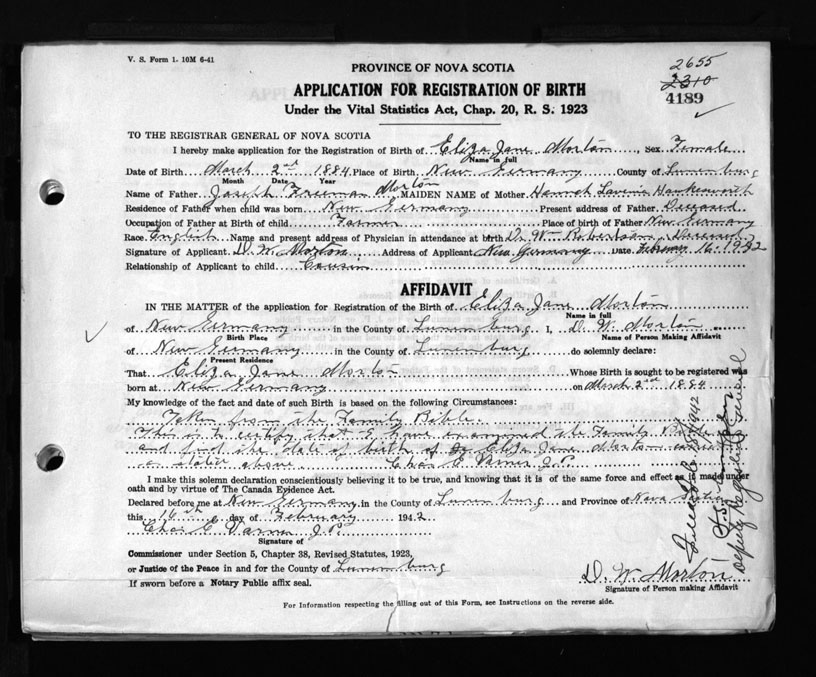 V. S. Form 1. 10M 6-41
2655
2310
4189
PROVINCE OF NOVA SCOTIA
APPLICATION FOR REGISTRATION OF BIRTH
Under the Vital Statistics Act, Chap. 20, R. S. 1923
TO THE REGISTRAR GENERAL OF NOVA SCOTIA
I hereby make application for the Registration of Birth of Eliza Jane Morton, Sex Female
Name in full
Date of Birth March 2nd 1884 Place of Birth New Germany County of Lunenburg
Month Date Year
Name of Father Joseph Freeman Morton MAIDEN NAME of Mother Hannah Lavinia
Residence of Father when child was born New Germany Present address of Father Deceased
Occupation of Father at Birth of child Farmer Place of birth of Father New Germany
Race English Name and present address of Physician in attendance at birth D. W. Robertson, Deceased
Signature of Applicant D. W. Morton Address of Applicant New Germany Date February 16. 1942
Relationship of Applicant to child Cousin
AFFIDAVIT
IN THE MATTER of the application for Registration of the Birth of Eliza Jane Morton
Name in full
of New Germany in the County of Lunenburg I, D. W. Morton
Birth Place Name of Person Making Affidavit
of New Germany in the County of Lunenburg do solemnly declare:
Present Residence
That Eliza Jane Morton Whose Birth is sought to be registered was
born at New Germany on March 2nd 1884
My knowledge of the fact and date of such Birth is based on the following Circumstances:
Taken from the Family Bible
This is to certify that I have examined the Family Bible
and find the date of birth of Eliza Jane Morton
as stated above. Chas E Varner J.P.
I make this solemn declaration conscientiously believing it to be true, and knowing that it is of the same force and effect as if made under
oath and by virtue of The Canada Evidence Act.
Declared before me at New Germany in the County of Lunenburg and Province of Nova Scotia
this 16th day of February 1942
Chas E Varner J.P.
Signature of
Commissioner under Section 5, Chapter 38, Revised Statutes, 1923,
or Justice of the Peace in and for the County of Lunenburg
If sworn before a Notary Public affix seal.
D. W. Morton
Signature of Person making Affidavit
For Information respecting the filling out of this Form, see Instructions on the reverse side.
1942
Deputy Registrar General